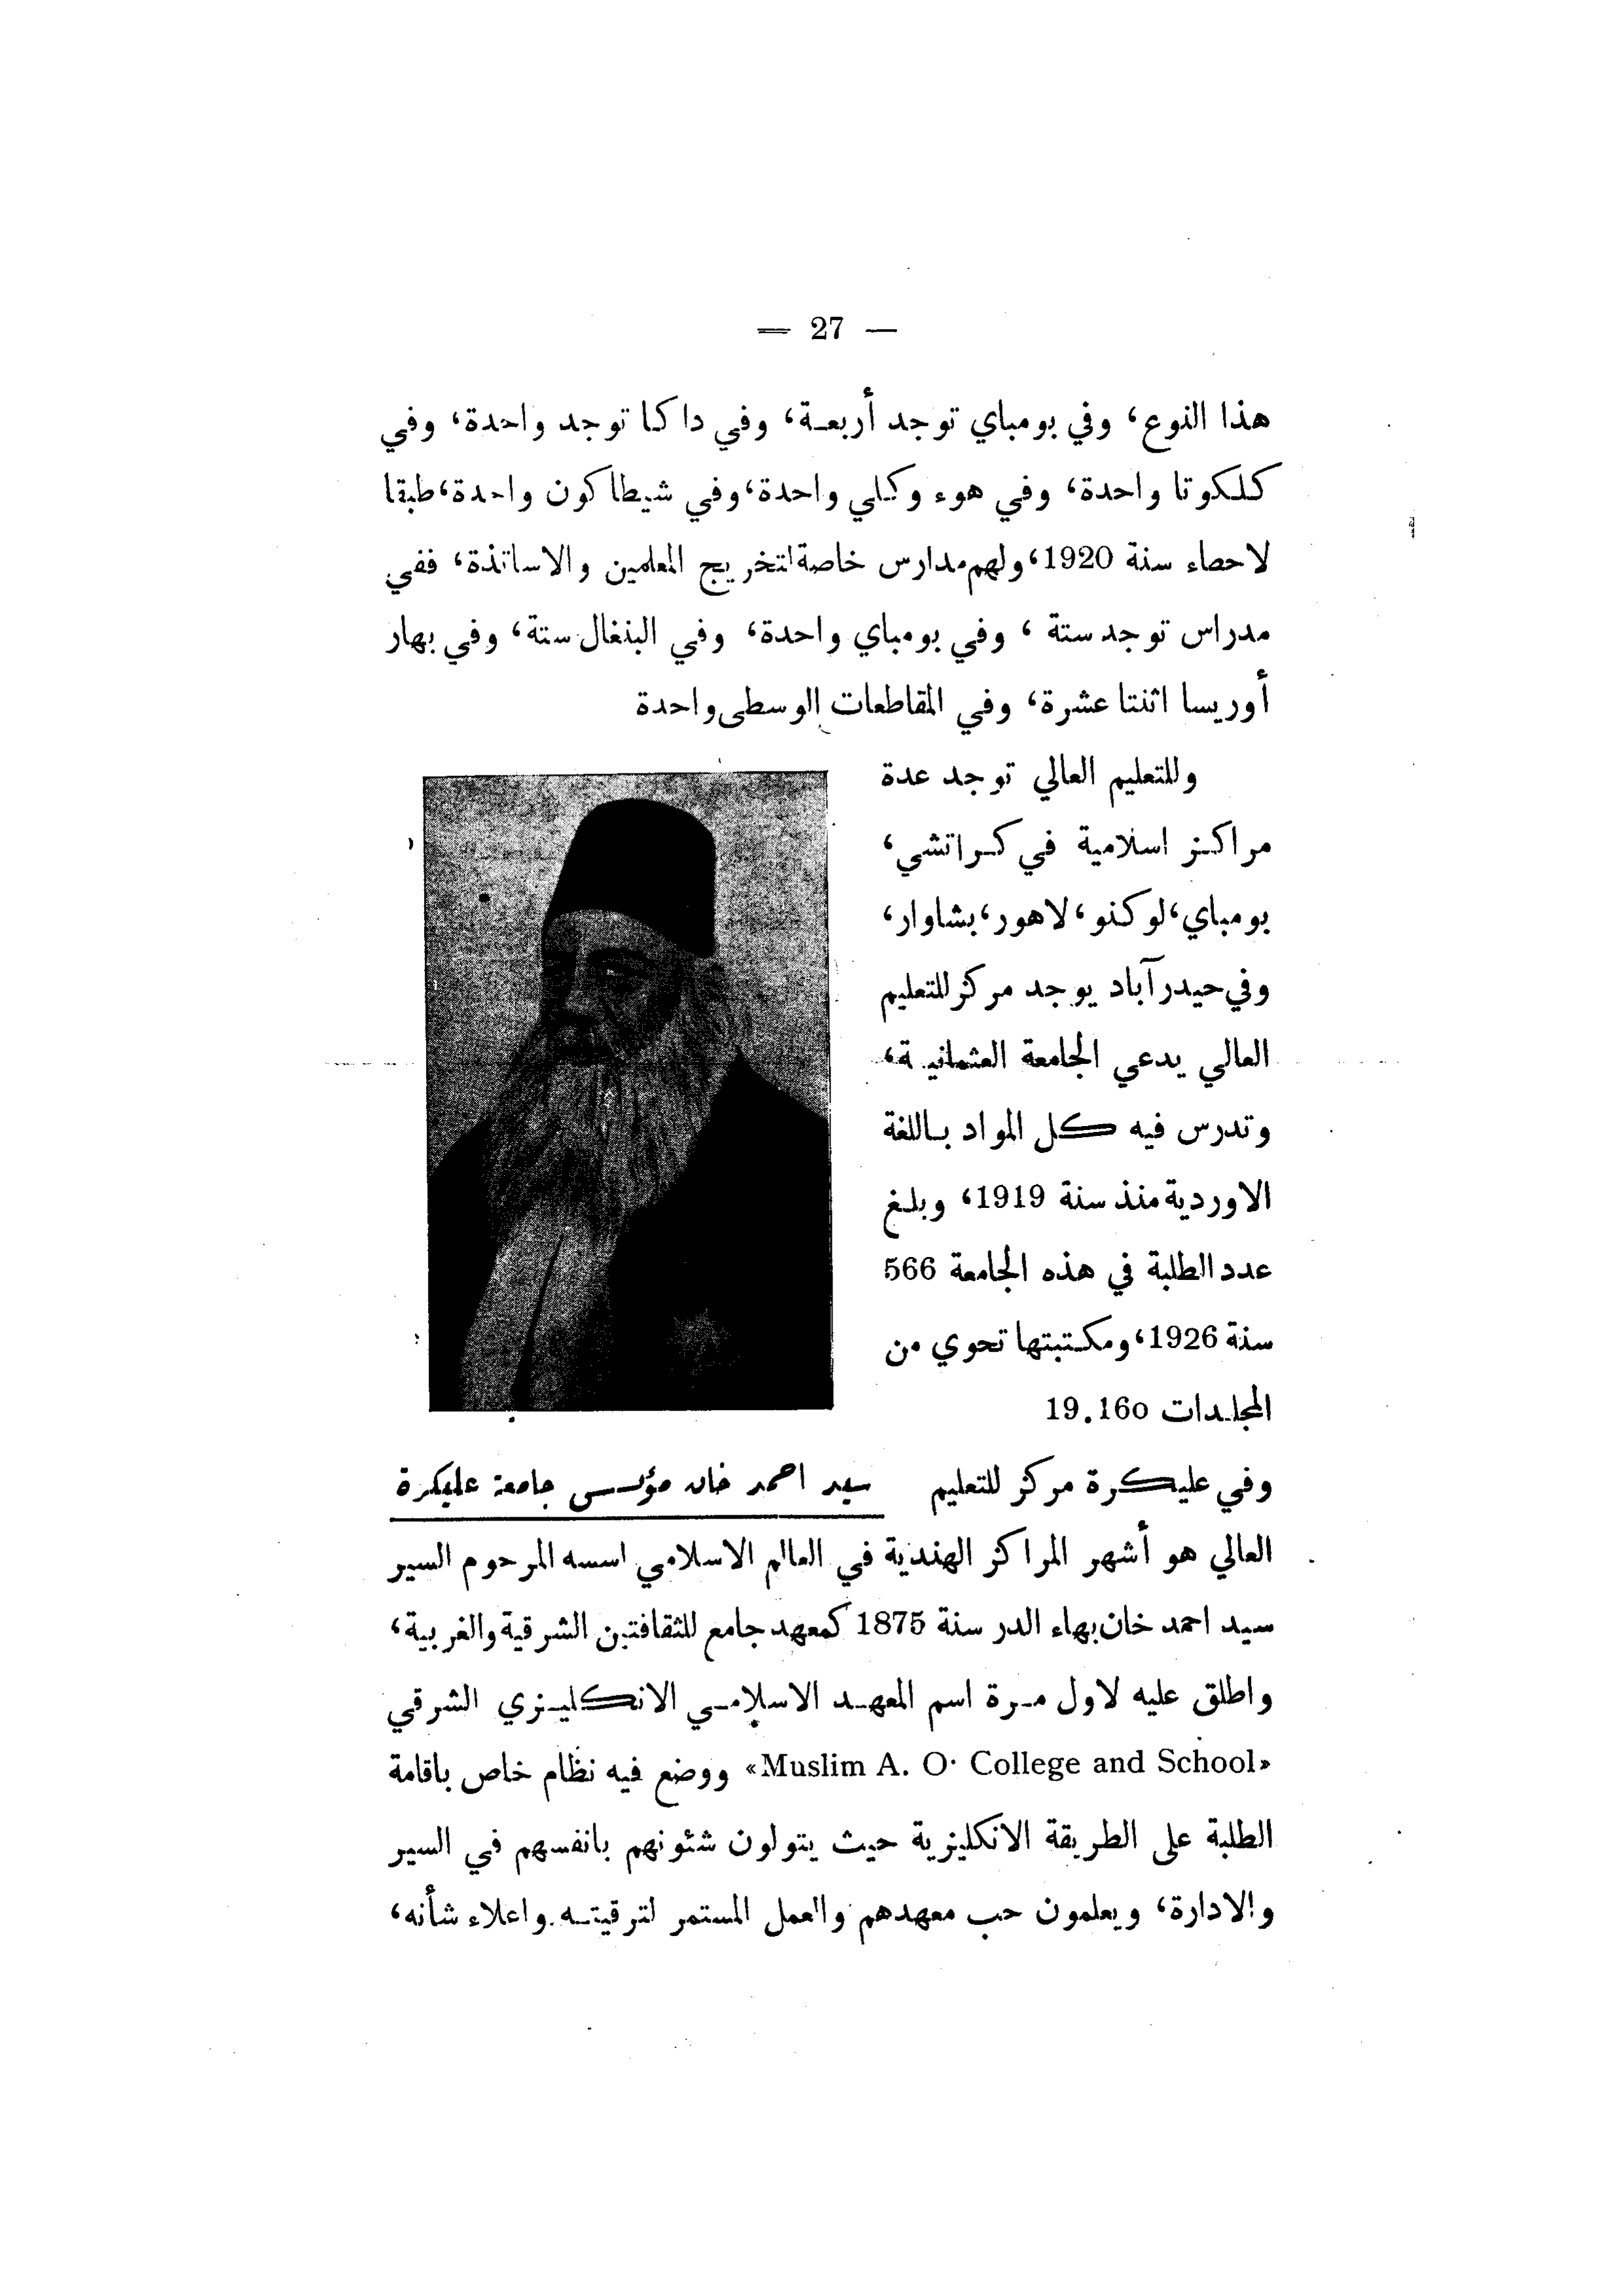 — 27 —
هذا النوع، وفي بومباي توجد أربعة، وفي داكا توجد واحدة، وفي
كلكوتا واحدة، وفي هوء وكلي واحدة، وفي شيطاكون واحدة، طبقا
لاحصاء سنة 1920، ولهم مدارس خاصة لتخريج المعلمين والاساتذة، ففي
مدراس توجد ستة ، وفي بومباي واحدة، وفي البنغال ستة، وفي بهار
أوريسا اثنتا عشرة، وفي المقاطعات الوسطى واحدة
وللتعليم العالي توجد عدة
مراكز اسلامية في كراتشي،
بومباي، لوكنو، لاهور، بشاوار،
وفي حيدرآباد يوجد مركز للتعليم
العالي يدعي الجامعة العثمانية،
وتدرس فيه كل المواد باللغة
الاوردية منذ سنة 1919، وبلغ
عدد الطلبة في هذه الجامعة 566
سنة 1926، ومكتبتها تحوي من
المجلدات 19.160
وفي عليكرة مركز للتعليم
سيد احمد خان مؤسس جامعة عليكرة
العالي هو أشهر المراكز الهندية في العالم الاسلامي اسسه المرحوم السير
سيد احمد خان بهاء الدر سنة 1875 كمعهد جامع للثقافتين الشرقية والغربية،
واطلق عليه لاول مرة اسم المعهد الاسلامي الانكليزي الشرقي
«Muslim A. O. College and School» ووضع فيه نظام خاص باقامة
الطلبة على الطريقة الانكليزية حيث يتولون شئونهم بانفسهم في السير
والادارة، ويعلمون حب معهدهم والعمل المستمر لترقيته واعلاء شأنه،